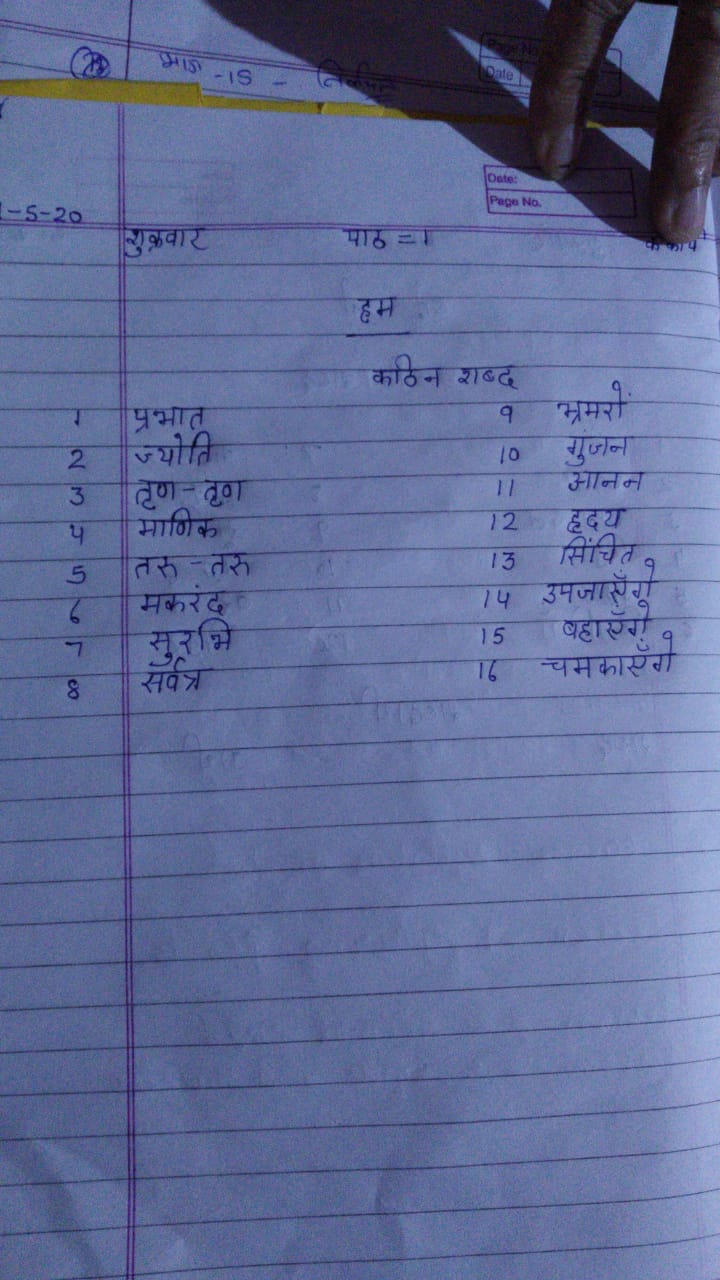 भाग -15 -
Page No.
Date
Date:
Page No.
-5-20
शुक्रवार पाठ = 1
हम
कठिन शब्द
1 प्रभात 9 भ्रमरों
2 ज्योति 10 गुंजन
3 तृण - तृण 11 आनन
4 माणिक 12 हृदय
5 तरु - तरु 13 सिंचित
6 मकरंद 14 उपजाएँगे
7 सुरभि 15 बहाएँगे
8 सर्वत्र 16 चमकाएँगे